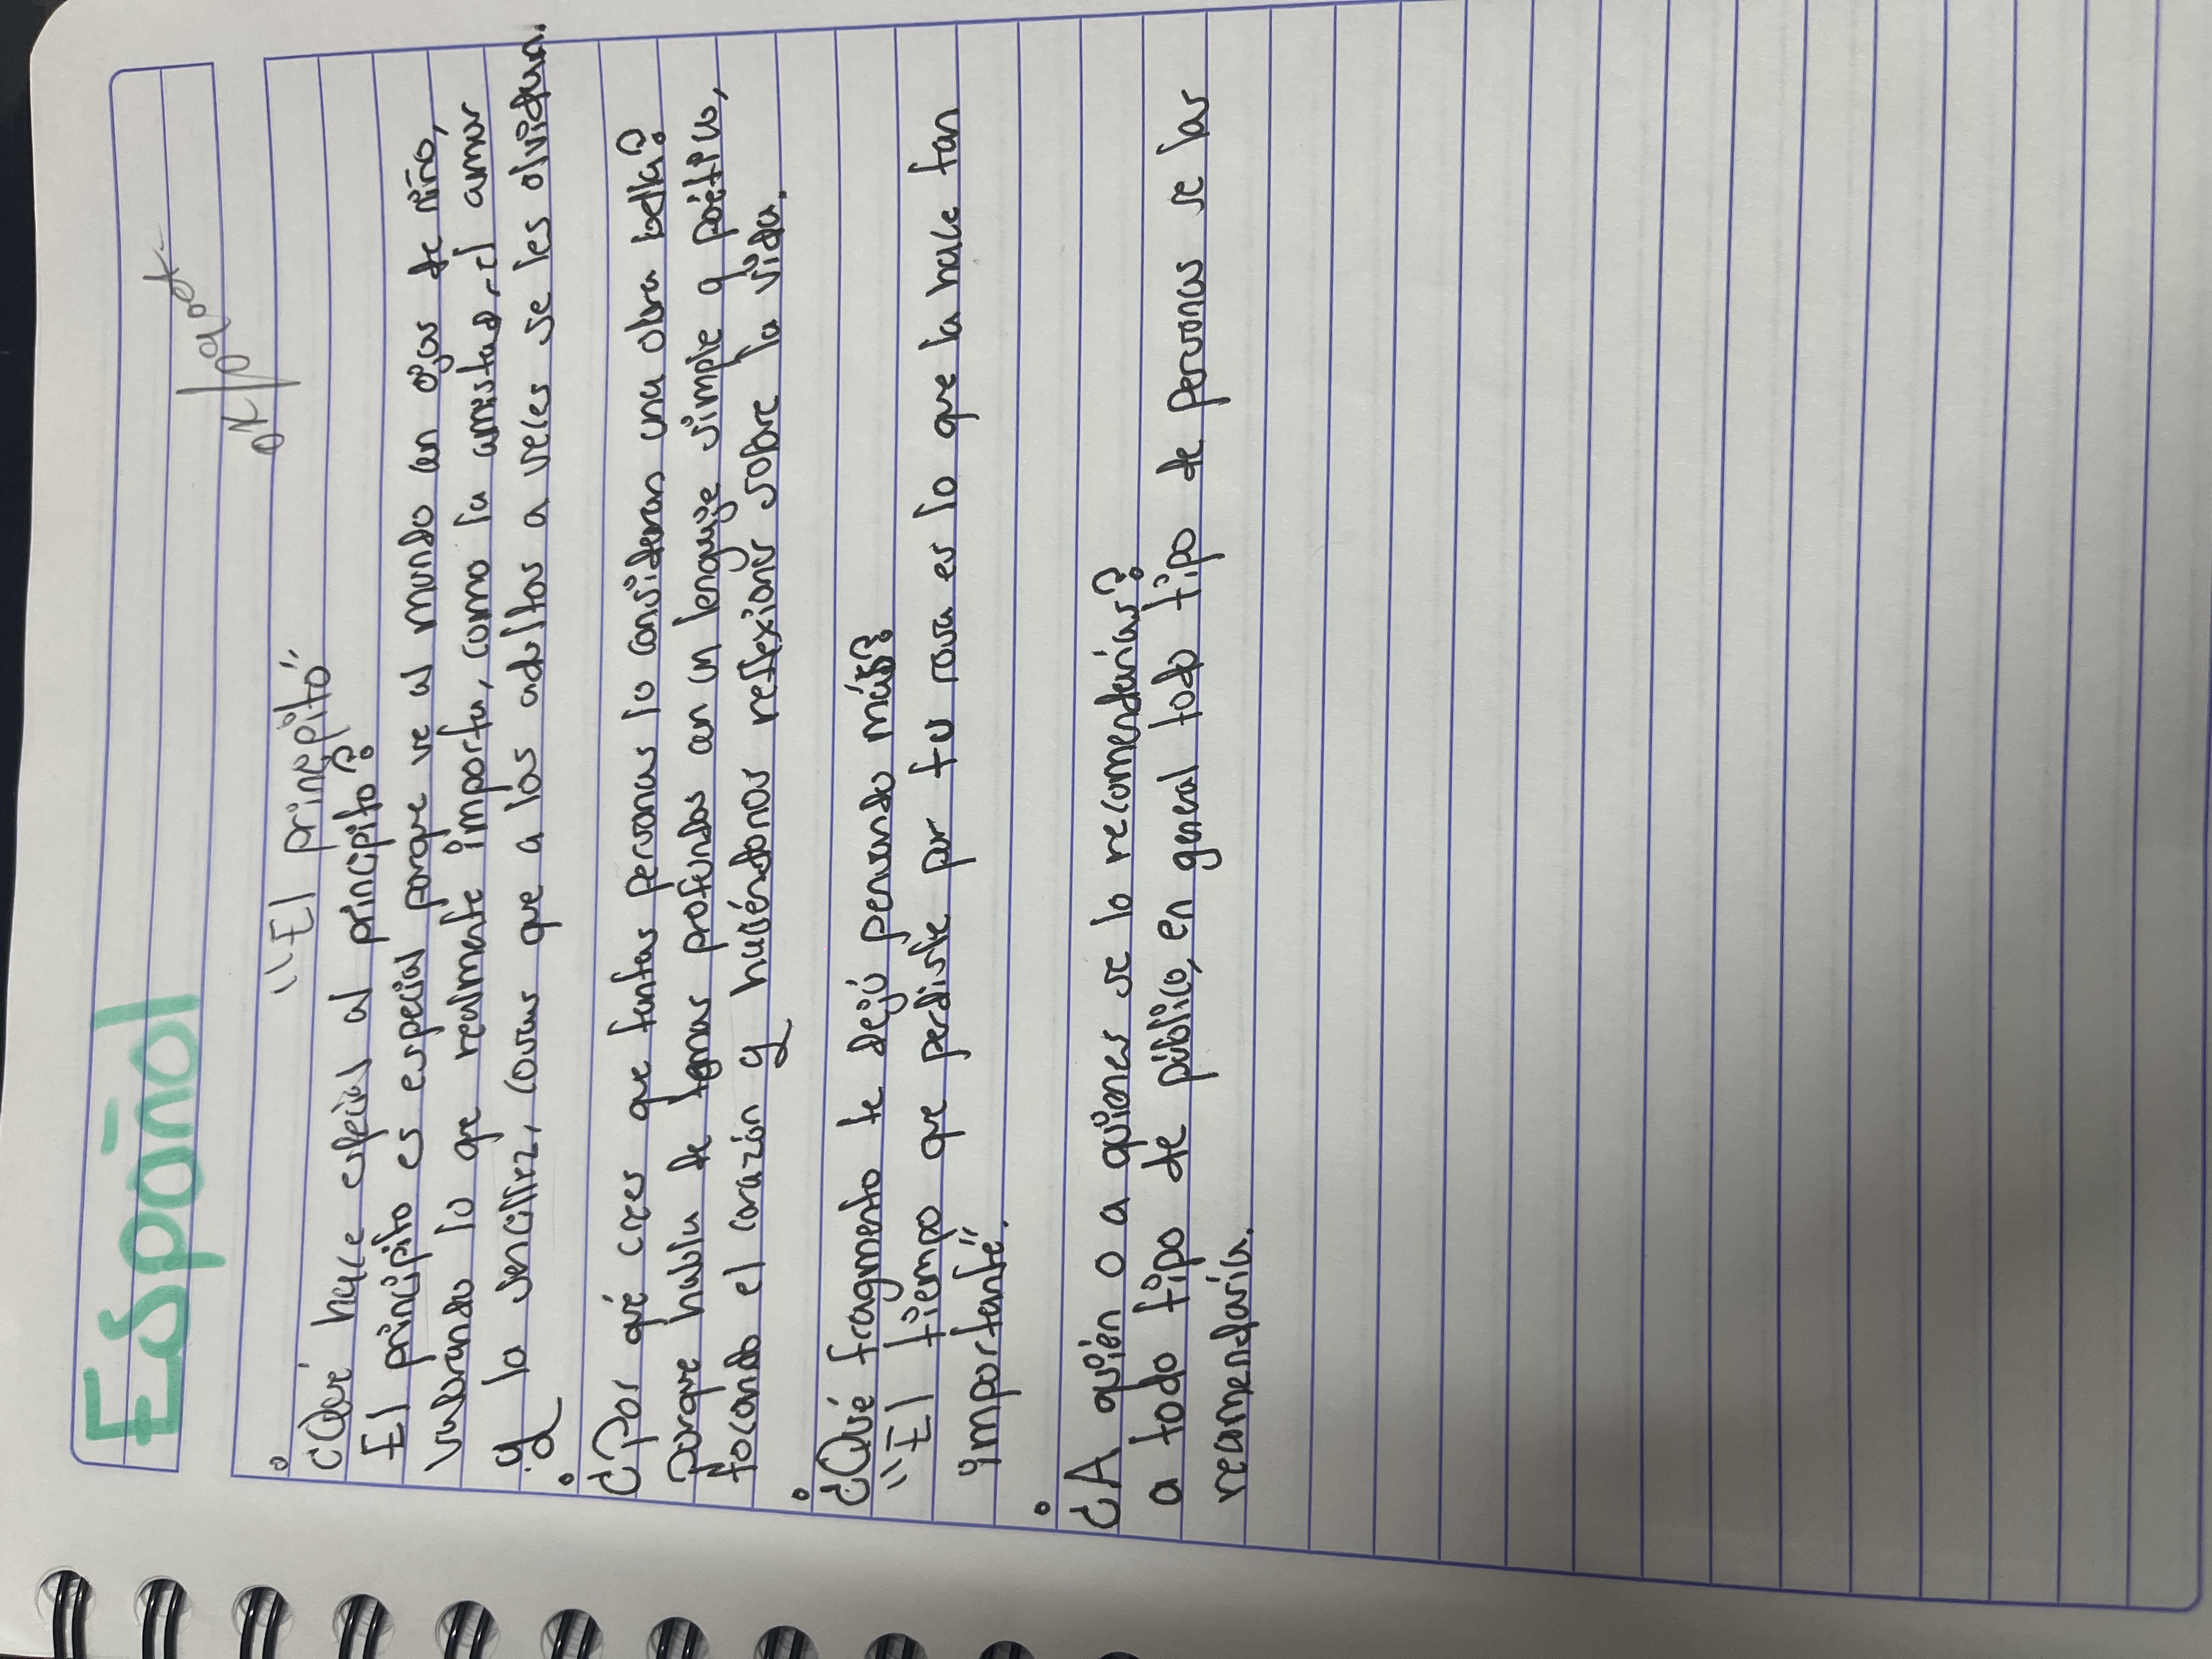 Español
"El principito"
¿Qué hace especial al principito?
El principito es especial porque ve al mundo con ojos de niño,
valorando lo que realmente importa, como la amistad, el amor
y la sencillez, cosas que a los adultos a veces se les olvidan.
¿Por qué crees que tantas personas lo consideran una obra bella?
Porque habla de temas profundos con un lenguaje simple y poético,
tocando el corazón y haciéndonos reflexionar sobre la vida.
¿Qué fragmento te dejó pensando más?
"El tiempo que perdiste por tu rosa es lo que la hace tan
importante".
¿A quién o a quienes se lo recomendarías?
a todo tipo de público, en general todo tipo de personas se las
recomendaría.